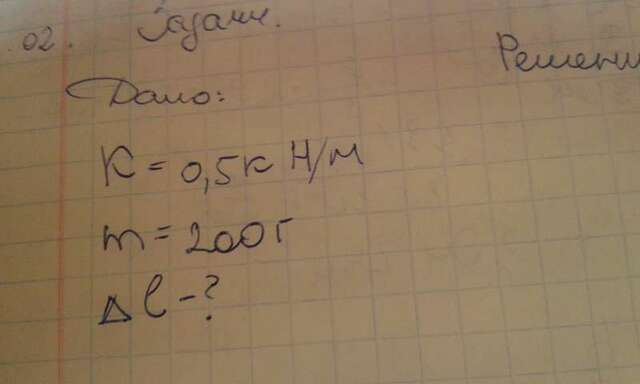 .02. Задачи.
Решени
Дано:
К = 0,5к Н/м
m = 200г
Δl - ?